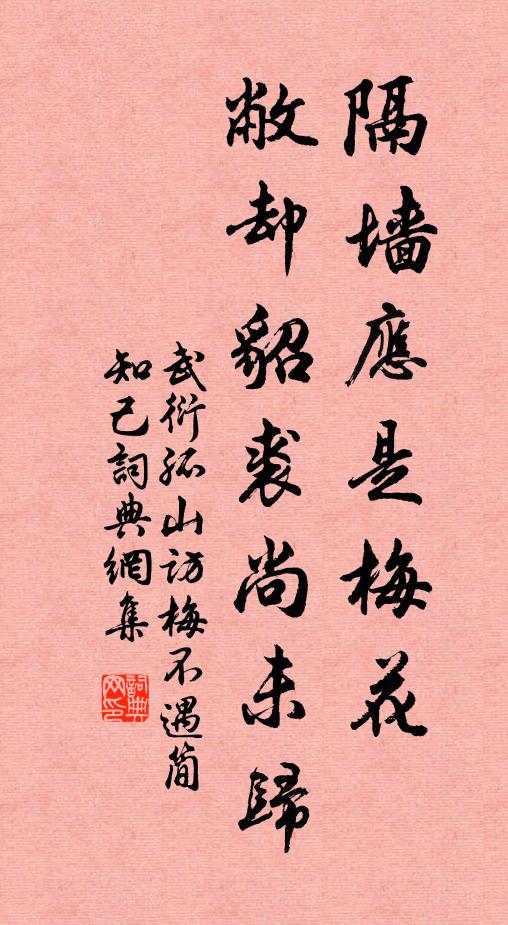 隔墙應是梅花
敝却貂裘尚未歸
武衍孤山访梅不遇简
知己詞典網集
詞典
网印